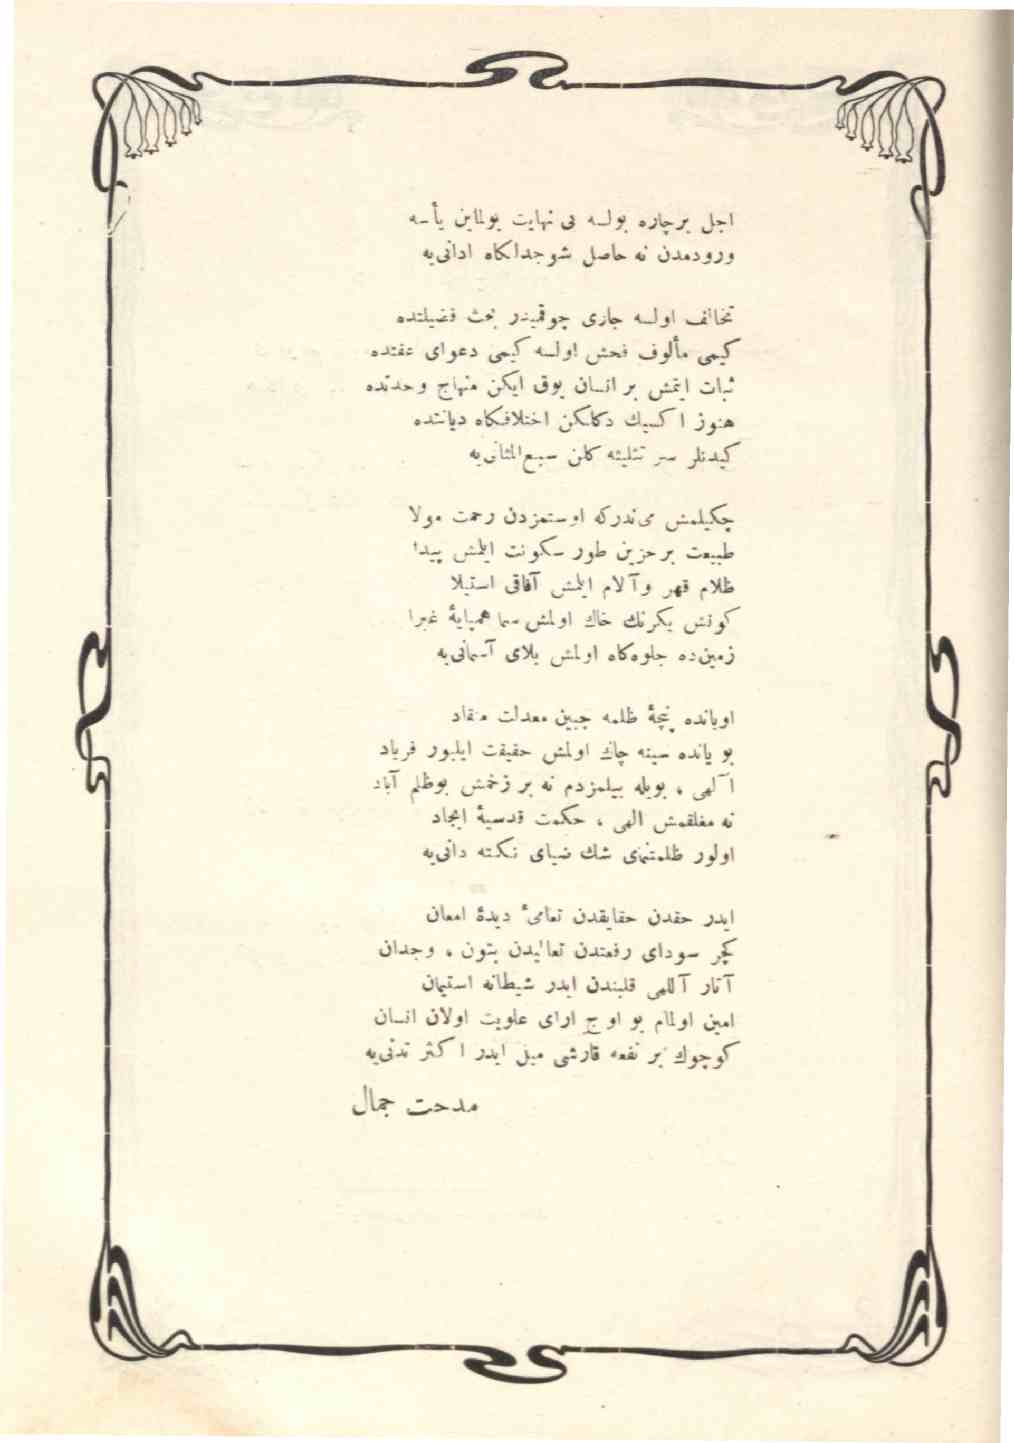 اجل بر چاره بولسه بی نهایت بولماین یأسه
ورودمدن نه حاصل شو جدالكاه ادانی‌یه
تخالف اولسه جاری چوقمیدر بحث فضیلتده
كیمی مألوف فحش اولسه كیمی دعوای عفتده
ثبات ایتمش بر انسان یوق ایكن منهاج وحدتده
هنوز اكسیك دكلكن اختلافكاه دیانتده
كیدنلر سر تثلیثه كلن سبع‌المثانی‌یه
چكیلمش می‌ندركه اوستمزدن رحمت مولا
طبیعت بر حزین طور سكونت ایلمش پیدا
ظلام قهر وآلام ایلمش آفاقی استیلا
كونش یكرنك خاك اولمش سما همپایهٔ غبرا
زمین‌ده جلوه‌كاه اولمش بلای آسمانی‌یه
اویانده پنچهٔ ظلمه جبین معدلت منقاد
بو یانده سینه چاك اولمش حقیقت ایلیور فریاد
آلهی ، بویله بیلمزدم نه بر زخمش بوظلم آباد
نه مغلقمش الهی ، حكمت قدسیهٔ ایجاد
اولور ظلمتنمای شك ضیای نكته دانی‌یه
ایدر حقدن حقایقدن تعامیٔ دیدهٔ امعان
كچر سودای رفعتدن تعالیدن بتون ، وجدان
آتار آللهی قلبندن ایدر شیطانه استیمان
امین اولمام بو اوج ارای علویت اولان انسان
كوچوك بر نفعه قارشی میل ایدر اكثر تدنی‌یه
مدحت جمال